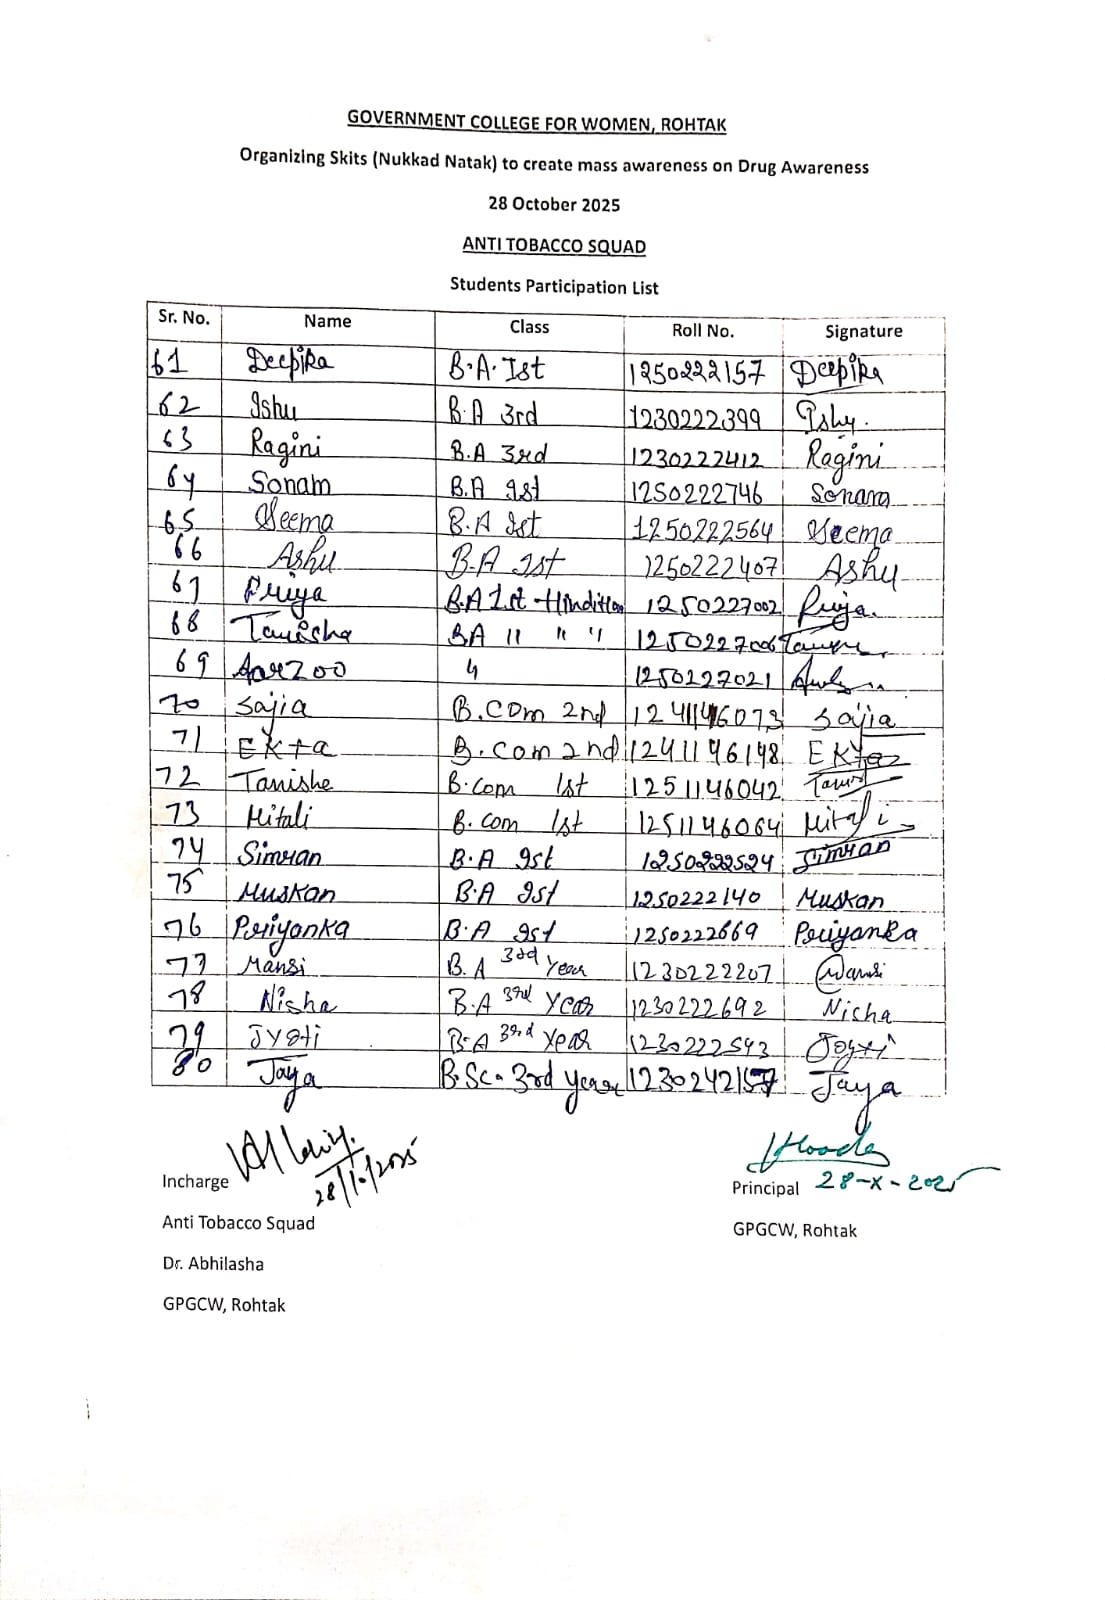 GOVERNMENT COLLEGE FOR WOMEN, ROHTAK
Organizing Skits (Nukkad Natak) to create mass awareness on Drug Awareness
28 October 2025
ANTI TOBACCO SQUAD
Students Participation List
Sr. No. Name Class Roll No. Signature
61 Deepika B.A. Ist 1250222157 Deepika
62 Ishu B.A 3rd 1230222399 Ishu.
63 Ragini B.A 3rd 1230222412 Ragini
64 Sonam B.A Ist 1250222746 Sonam
65 Seema B.A Ist 1250222564 Seema
66 Ashu B.A Ist 1250222407 Ashu
67 Priya B.A 1st 1250227002 Priya.
68 Tanisha BA 11 " " 1250227006
69 Aarzoo 4 1250227021
70 Sajia B.Com 2nd 1241146073 Sajia
71 Ekta B.Com 2nd 1241146148 Ekta
72 Tanishe B.com 1st 1251146042
73 Mitali B.com 1st 1251146064 Mitali
74 Simran B.A Ist 1250222524 Simran
75 Muskan B.A Ist 1250222140 Muskan
76 Periyanka B.A Ist 1250222669 Periyanka
77 Mansi B.A 3rd Year 1230222207 Mansi
78 Nisha B.A 3rd Year 1230222692 Nisha
79 Jyoti B.A 3rd Year 1230222543 Joyti
80 Jaya B.Sc. 3rd year 1230242157 Jaya
28/10/2025
Incharge
Principal 28-X-2025
Anti Tobacco Squad
GPGCW, Rohtak
Dr. Abhilasha
GPGCW, Rohtak